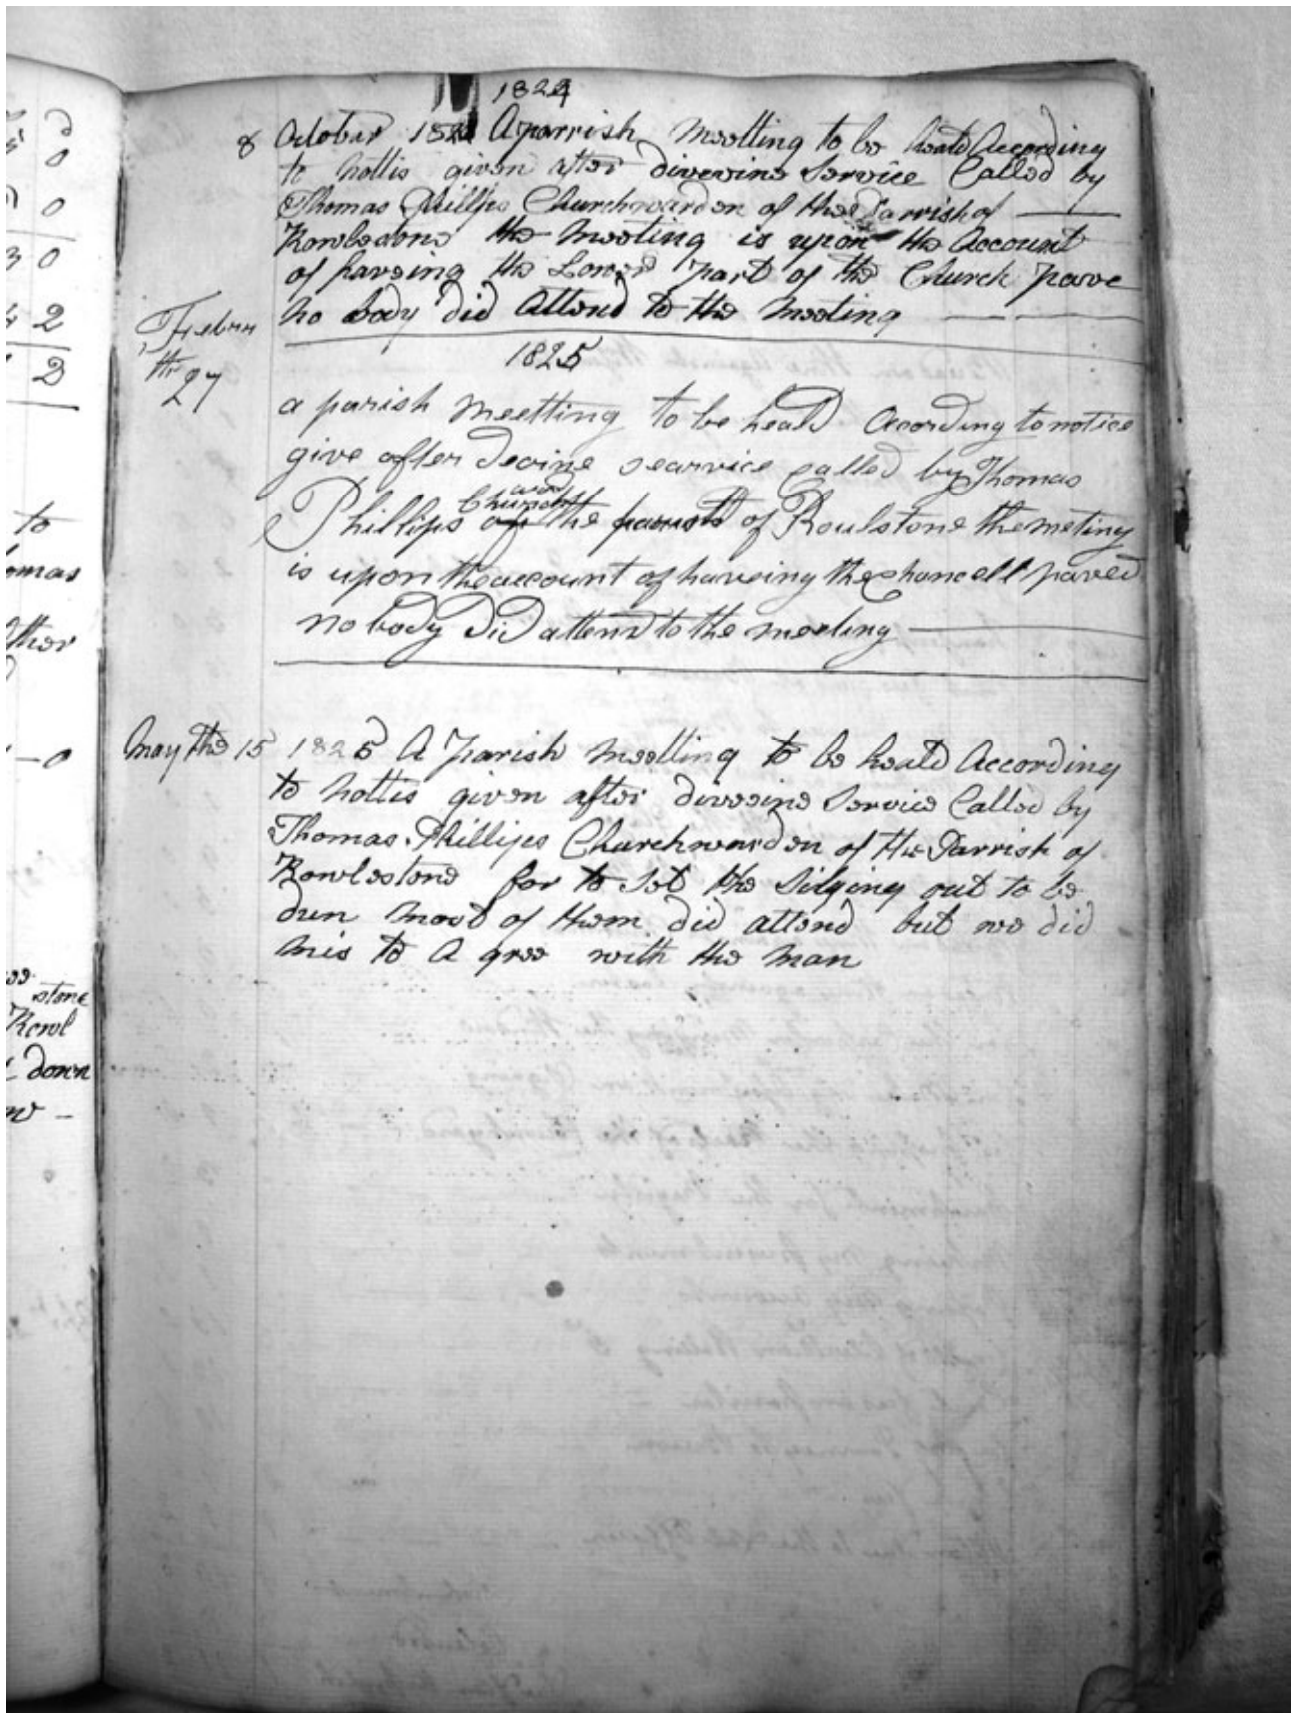 1824
8 October 1824 A parrish meetting to be heald According
to nottis given after diveeine Service Called by
Thomas Phillips Churchwarden of the Parrish of
Rowlestone the meeting is upon the Account
of haveing the Lower part of the Church pave
no body did Attend to the meeting
Febru
the 27
1825
a parish meetting to be heald according to notice
give after devine searvice called by Thomas
Phillips Church ward of the parish of Roulstone the meting
is upon the account of haveing the chancell paved
no body did attend to the meeting
May the 15 1825 A Parish meetting to be heald According
to nottis given after diveeine Service Called by
Thomas Phillips Churchwarden of the Parrish of
Rowlestone for to Set the Silging out to be
dun most of them did attend but we did
mis to A gree with the man
to
omas
ther
stone
Rowl
down